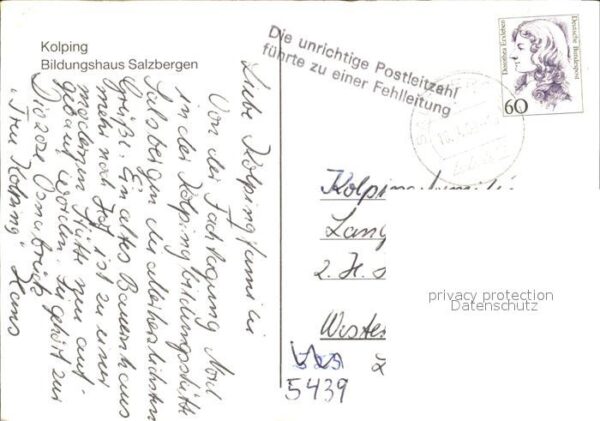 Kolping
Bildungshaus Salzbergen
Die unrichtige Postleitzahl
führte zu einer Fehlleitung
Dorothea Erxleben
Deutsche Bundespost
60
Liebe Kolpingfamilie
Von der Fachtagung Nord
in der Kolpingbildungsstätte
Salzbergen die allerherzlichsten
Grüße. Ein altes Bauernhaus
mehr noch Hof ist zu einer
modernen Stätte neu auf-
gebaut worden. Sie gehört zur
Diözese Osnabrück
"Treu Kolping" Hans
Kolping
Lang
2. H.
Weste
5439
privacy protection
Datenschutz